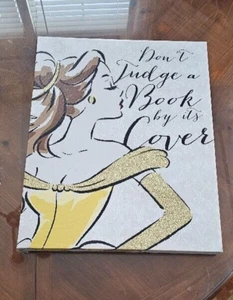 Don't
Judge a
Book
by its
Cover